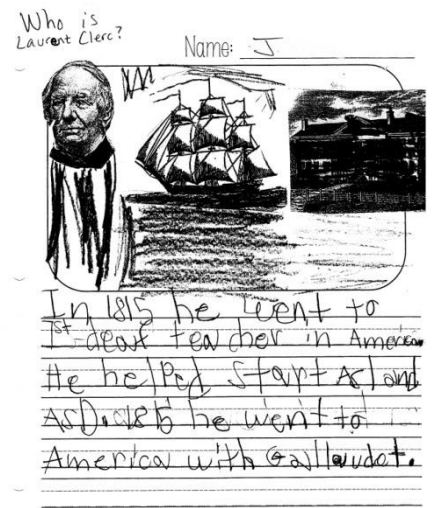 Who is
Laurent Clerc?
Name: J
In 1815 he went to
1st deaf teacher in America
He helped start ASl and
ASD. 1815 he went to
America with Gallaudet.